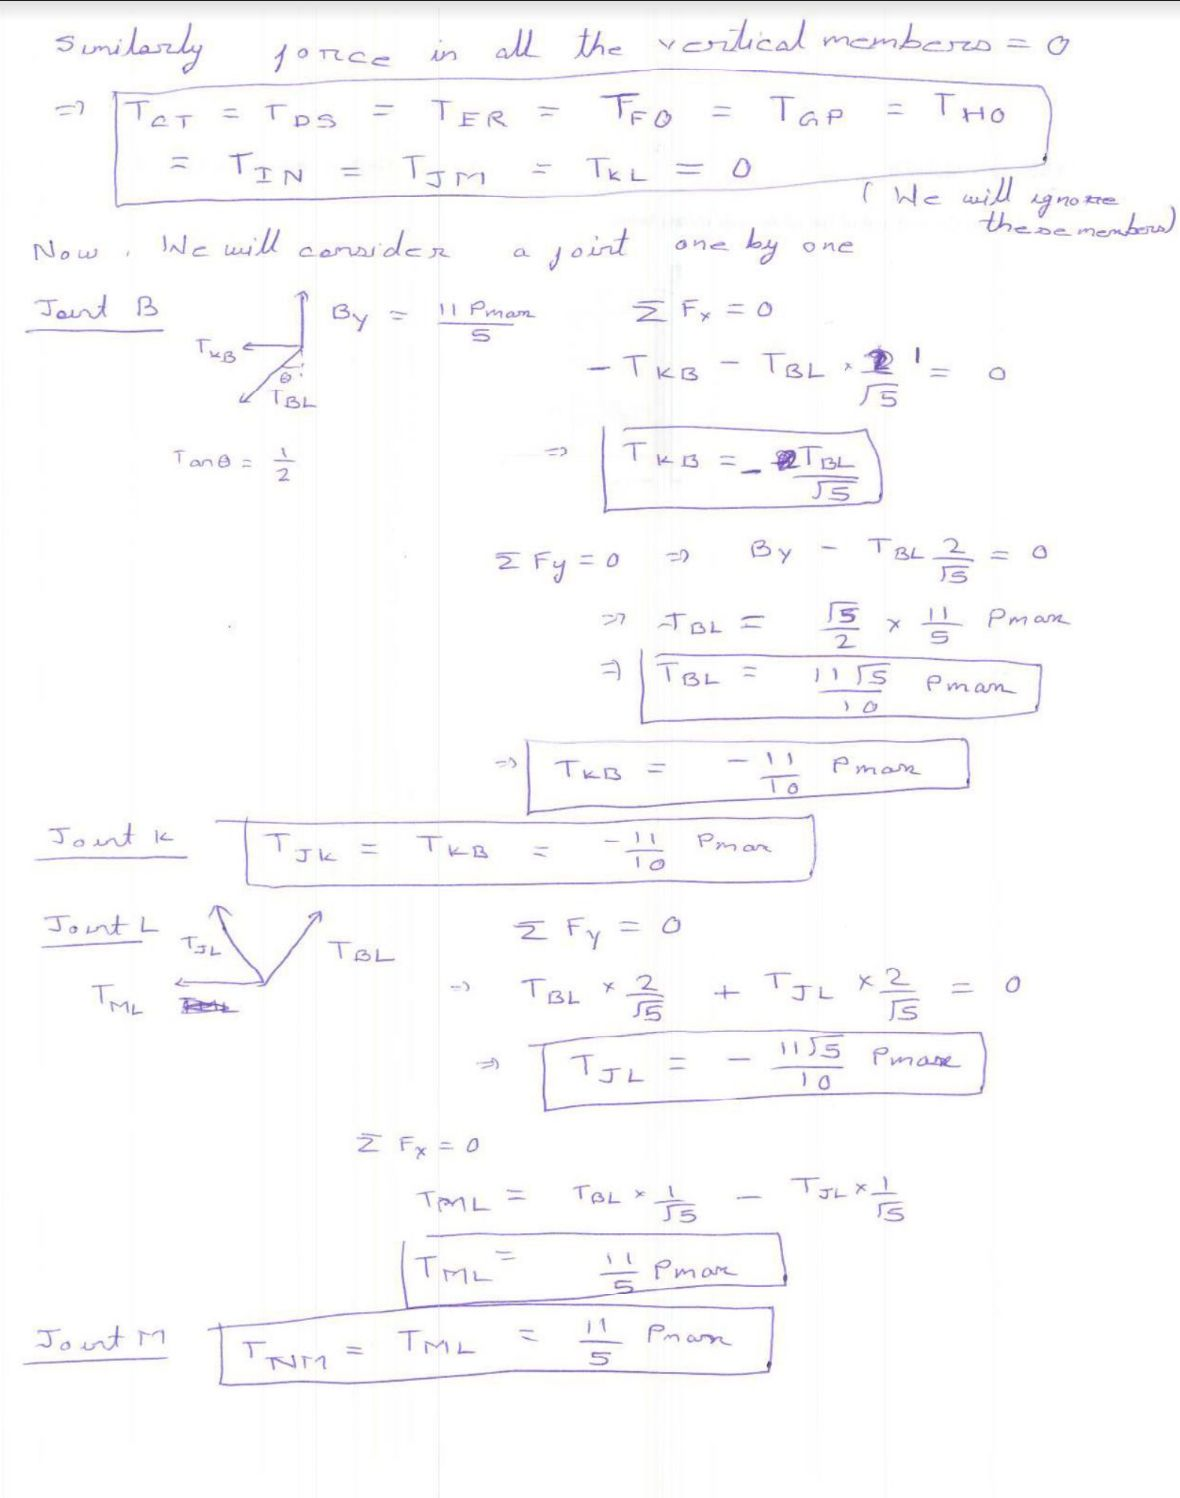 Similarly force in all the vertical members = 0
⇒ T_CT = T_DS = T_ER = T_FQ = T_GP = T_HO
= T_IN = T_JM = T_KL = 0
( We will ignore
these members)
Now, We will consider a joint one by one
Joint B
T_KB
θ
T_BL
By = 11 Pmax / 5
Σ Fx = 0
- T_KB - T_BL × 1/√5 = 0
Tanθ = 1/2
⇒ T_KB = - T_BL/√5
Σ Fy = 0 ⇒ By - T_BL 2/√5 = 0
⇒ T_BL = √5/2 × 11/5 Pmax
⇒ T_BL = 11√5/10 Pmax
⇒ T_KB = -11/10 Pmax
Joint K
T_JK = T_KB = -11/10 Pmax
Joint L
T_JL
T_BL
T_ML
Σ Fy = 0
⇒ T_BL × 2/√5 + T_JL × 2/√5 = 0
⇒ T_JL = - 11√5/10 Pmax
Σ Fx = 0
T_ML = T_BL × 1/√5 - T_JL × 1/√5
T_ML = 11/5 Pmax
Joint M
T_NM = T_ML = 11/5 Pmax